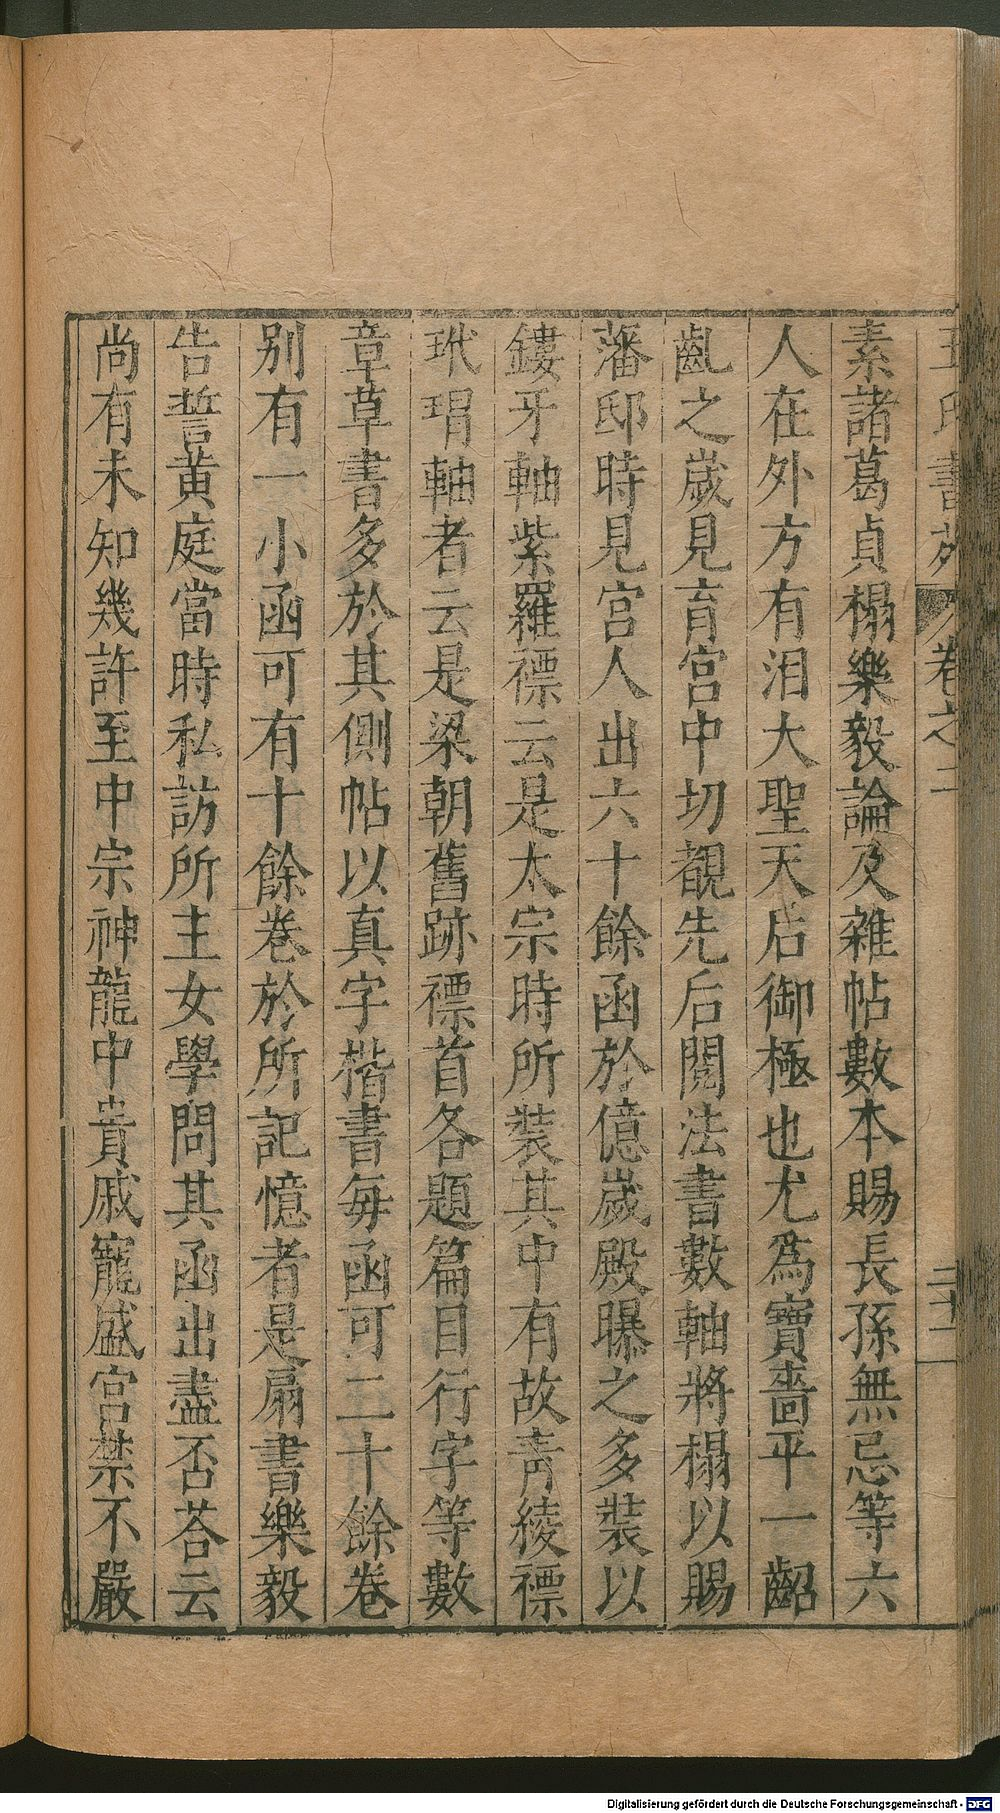 王氏書苑 卷之二 二十一
素諸葛貞榻樂毅論及雜帖數本賜長孫無忌等六
人在外方有泪大聖天后御極也尤為寶嗇平一齠
齓之歲見育宮中切覩先后閱法書數軸將榻以賜
藩邸時見宮人出六十餘函於億歲殿曝之多裝以
鏤牙軸紫羅褾云是太宗時所裝其中有故青綾褾
玳瑁軸者云是梁朝舊跡褾首各題篇目行字等數
章草書多於其側帖以真字楷書每函可二十餘卷
別有一小函可有十餘卷於所記憶者是扇書樂毅
告誓黃庭當時私訪所主女學問其函出盡否荅云
尚有未知幾許至中宗神龍中貴戚寵盛宮禁不嚴
Digitalisierung gefördert durch die Deutsche Forschungsgemeinschaft - DFG